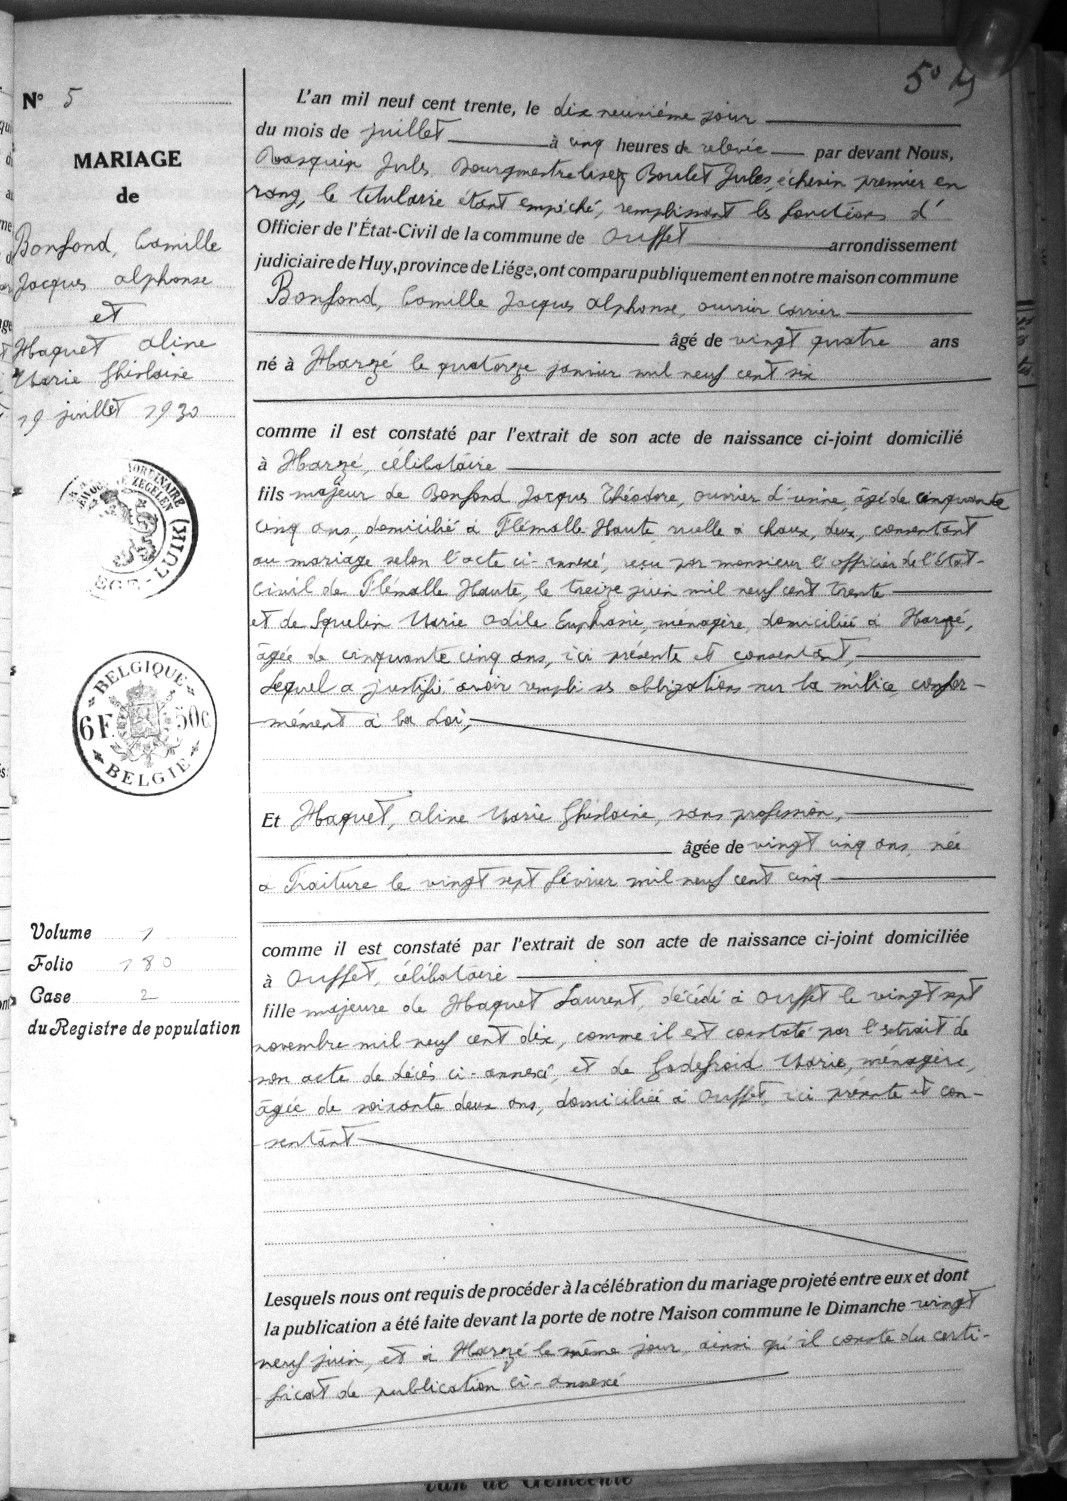 50
N° 5
MARIAGE
de
Bonfond, Camille
Jacques Alphonse
et
Haquet Aline
Marie Ghislaine
19 juillet 1930
L'an mil neuf cent trente, le dix neuvième jour
du mois de juillet à cinq heures de relevée par devant Nous,
Jules, Bourgmestre Boulet Jules, échevin premier en
rang, le titulaire étant empêché, remplissant les fonctions d'
Officier de l'État-Civil de la commune de Ouffet arrondissement
judiciaire de Huy, province de Liége, ont comparu publiquement en notre maison commune
Bonfond, Camille Jacques Alphonse, ouvrier carrier
âgé de vingt quatre ans
né à Harzé le quatorze janvier mil neuf cent six
comme il est constaté par l'extrait de son acte de naissance ci-joint domicilié
à Harzé, célibataire
fils majeur de Bonfond Jacques Théodore, ouvrier d'usine, âgé de cinquante
cinq ans, domicilié à Flémalle Haute, ruelle à chaux, deux, consentant
au mariage selon l'acte ci-annexé, reçu par monsieur l'officier de l'état-
civil de Flémalle Haute, le treize juin mil neuf cent trente
et de Squelin Marie Odile Euphanie, ménagère, domiciliée à Harzé,
âgée de cinquante cinq ans, ici présente et consentant,
Lequel a justifié avoir rempli ses obligations sur la milice, confor-
mément à la Loi,
BELGIQUE
6F. 50c.
BELGIE
Et Haquet, Aline Marie Ghislaine, sans profession,
âgée de vingt cinq ans, née
à Traiture le vingt sept février mil neuf cent cinq
Volume 1
Folio 180
Case 2
du Registre de population
comme il est constaté par l'extrait de son acte de naissance ci-joint domiciliée
à Ouffet, célibataire
fille majeure de Haquet Laurent, décédé à Ouffet le vingt sept
novembre mil neuf cent dix, comme il est constaté par l'extrait de
son acte de décès ci-annexé, et de Godefroid Marie, ménagère,
âgée de soixante deux ans, domiciliée à Ouffet, ici présente et con-
sentant
Lesquels nous ont requis de procéder à la célébration du mariage projeté entre eux et dont
la publication a été faite devant la porte de notre Maison commune le Dimanche vingt
neuf juin, et à Harzé le même jour, ainsi qu'il conste du certi-
ficat de publication ci-annexé
van de Gemeente